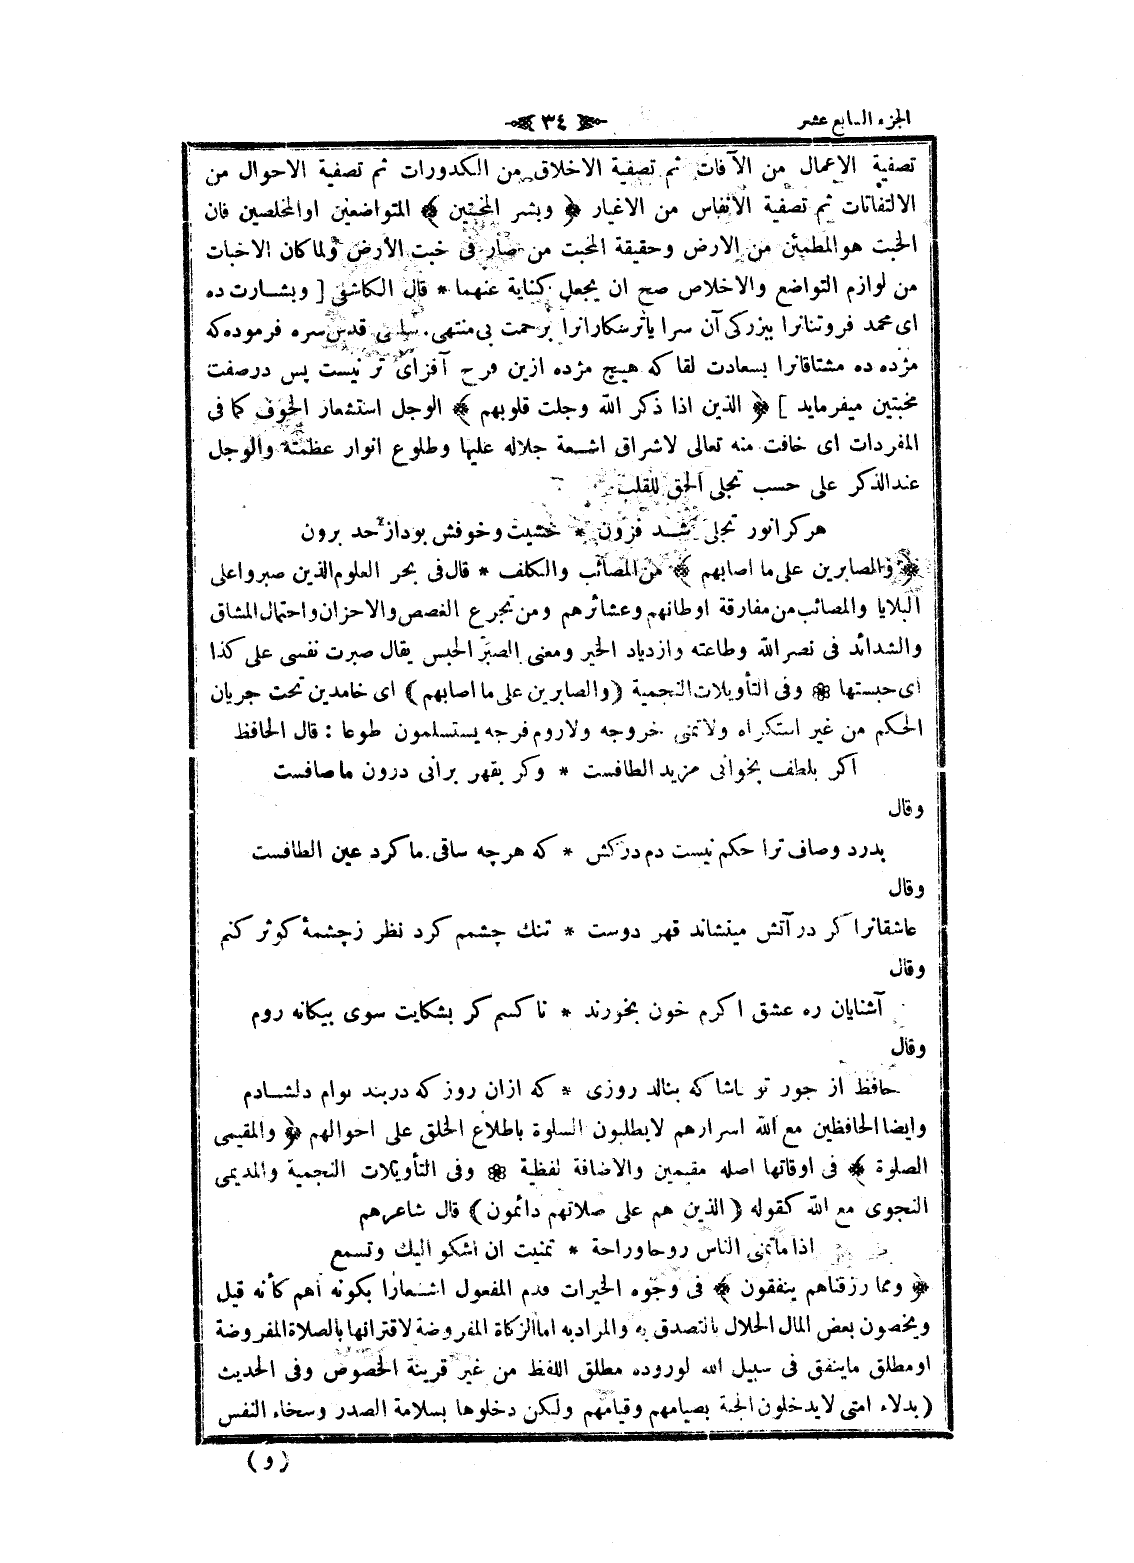 الجزء السابع عشر
﴿ ٣٤ ﴾
تصفية الاعمال من الآفات ثم تصفية الاخلاق من الكدورات ثم تصفية الاحوال من
الالتفاتات ثم تصفية الانفاس من الاغيار ﴿ وبشر المخبتين ﴾ المتواضعين اوالمخلصين فان
الخبت هوالمطمئن من الارض وحقيقة المخبت من صار فى خبت الأرض ولما كان الاخبات
من لوازم التواضع والاخلاص صح ان يجعل كناية عنهما * قال الكاشفى [ وبشارت ده
اى محمد فروتنانرا ببزركى آن سرا ياترسكارانرا برحمت بى منتهى. سلمى قدس سره فرموده كه
مژده ده مشتاقانرا بسعادت لقا كه هيچ مژده ازين فرح آفزاى تر نيست پس درصفت
مخبتين ميفرمايد ] ﴿ الذين اذا ذكر الله وجلت قلوبهم ﴾ الوجل استشعار الخوف كما فى
المفردات اى خافت منه تعالى لاشراق اشعة جلاله عليها وطلوع انوار عظمته والوجل
عندالذكر على حسب تجلى الحق للقلب
هركرانور تجلى شد فزون * خشيت وخوفش بوداز حد برون
﴿ والصابرين على ما اصابهم ﴾ من المصائب والكلف * قال فى بحر العلوم الذين صبروا على
البلايا والمصائب من مفارقة اوطانهم وعشائرهم ومن تجرع الغصص والاحزان واحتمال المشاق
والشدائد فى نصر الله وطاعته وازدياد الخير ومعنى الصبر الحبس يقال صبرت نفسى على كذا
اى حبستها ❁ وفى التأويلات النجمية (والصابرين على ما اصابهم) اى خامدين تحت جريان
الحكم من غير استكراه ولاتمنى خروجه ولاروم فرجه يستسلمون طوعا : قال الحافظ
اكر بلطف بخوانى مزيد الطافست * وكر بقهر برانى درون ماصافست
وقال
بدرد وصاف ترا حكم نيست دم دركش * كه هرچه ساقى ماكرد عين الطافست
وقال
عاشقانرا كر در آتش مينشاند قهر دوست * تنك چشمم كرد نظر زچشمهٔ كوثر كنم
وقال
آشنايان ره عشق اكرم خون بخورند * ناكسم كر بشكايت سوى بيكانه روم
وقال
حافظ از جور تو حاشا كه بنالد روزى * كه ازان روز كه دربند توام دلشادم
وايضا الحافظين مع الله اسرارهم لايطلبون السلوة باطلاع الخلق على احوالهم ﴿ والمقيمى
الصلوة ﴾ فى اوقاتها اصله مقيمين والاضافة لفظية ❁ وفى التأويلات النجمية والمديمى
النجوى مع الله كقوله (الذين هم على صلاتهم دائمون) قال شاعرهم
اذا ماتمنى الناس روحا وراحة * تمنيت ان اشكو اليك وتسمع
﴿ ومما رزقناهم ينفقون ﴾ فى وجوه الخيرات قدم المفعول اشعارا بكونه اهم كأنه قيل
ويخصون بعض المال الحلال بالتصدق به والمراد به اما الزكاة المفروضة لاقترانها بالصلاة المفروضة
اومطلق ماينفق فى سبيل الله لوروده مطلق اللفظ من غير قرينة الخصوص وفى الحديث
(بدلاء امتى لايدخلون الجنة بصيامهم وقيامهم ولكن دخلوها بسلامة الصدر وسخاء النفس
(و)